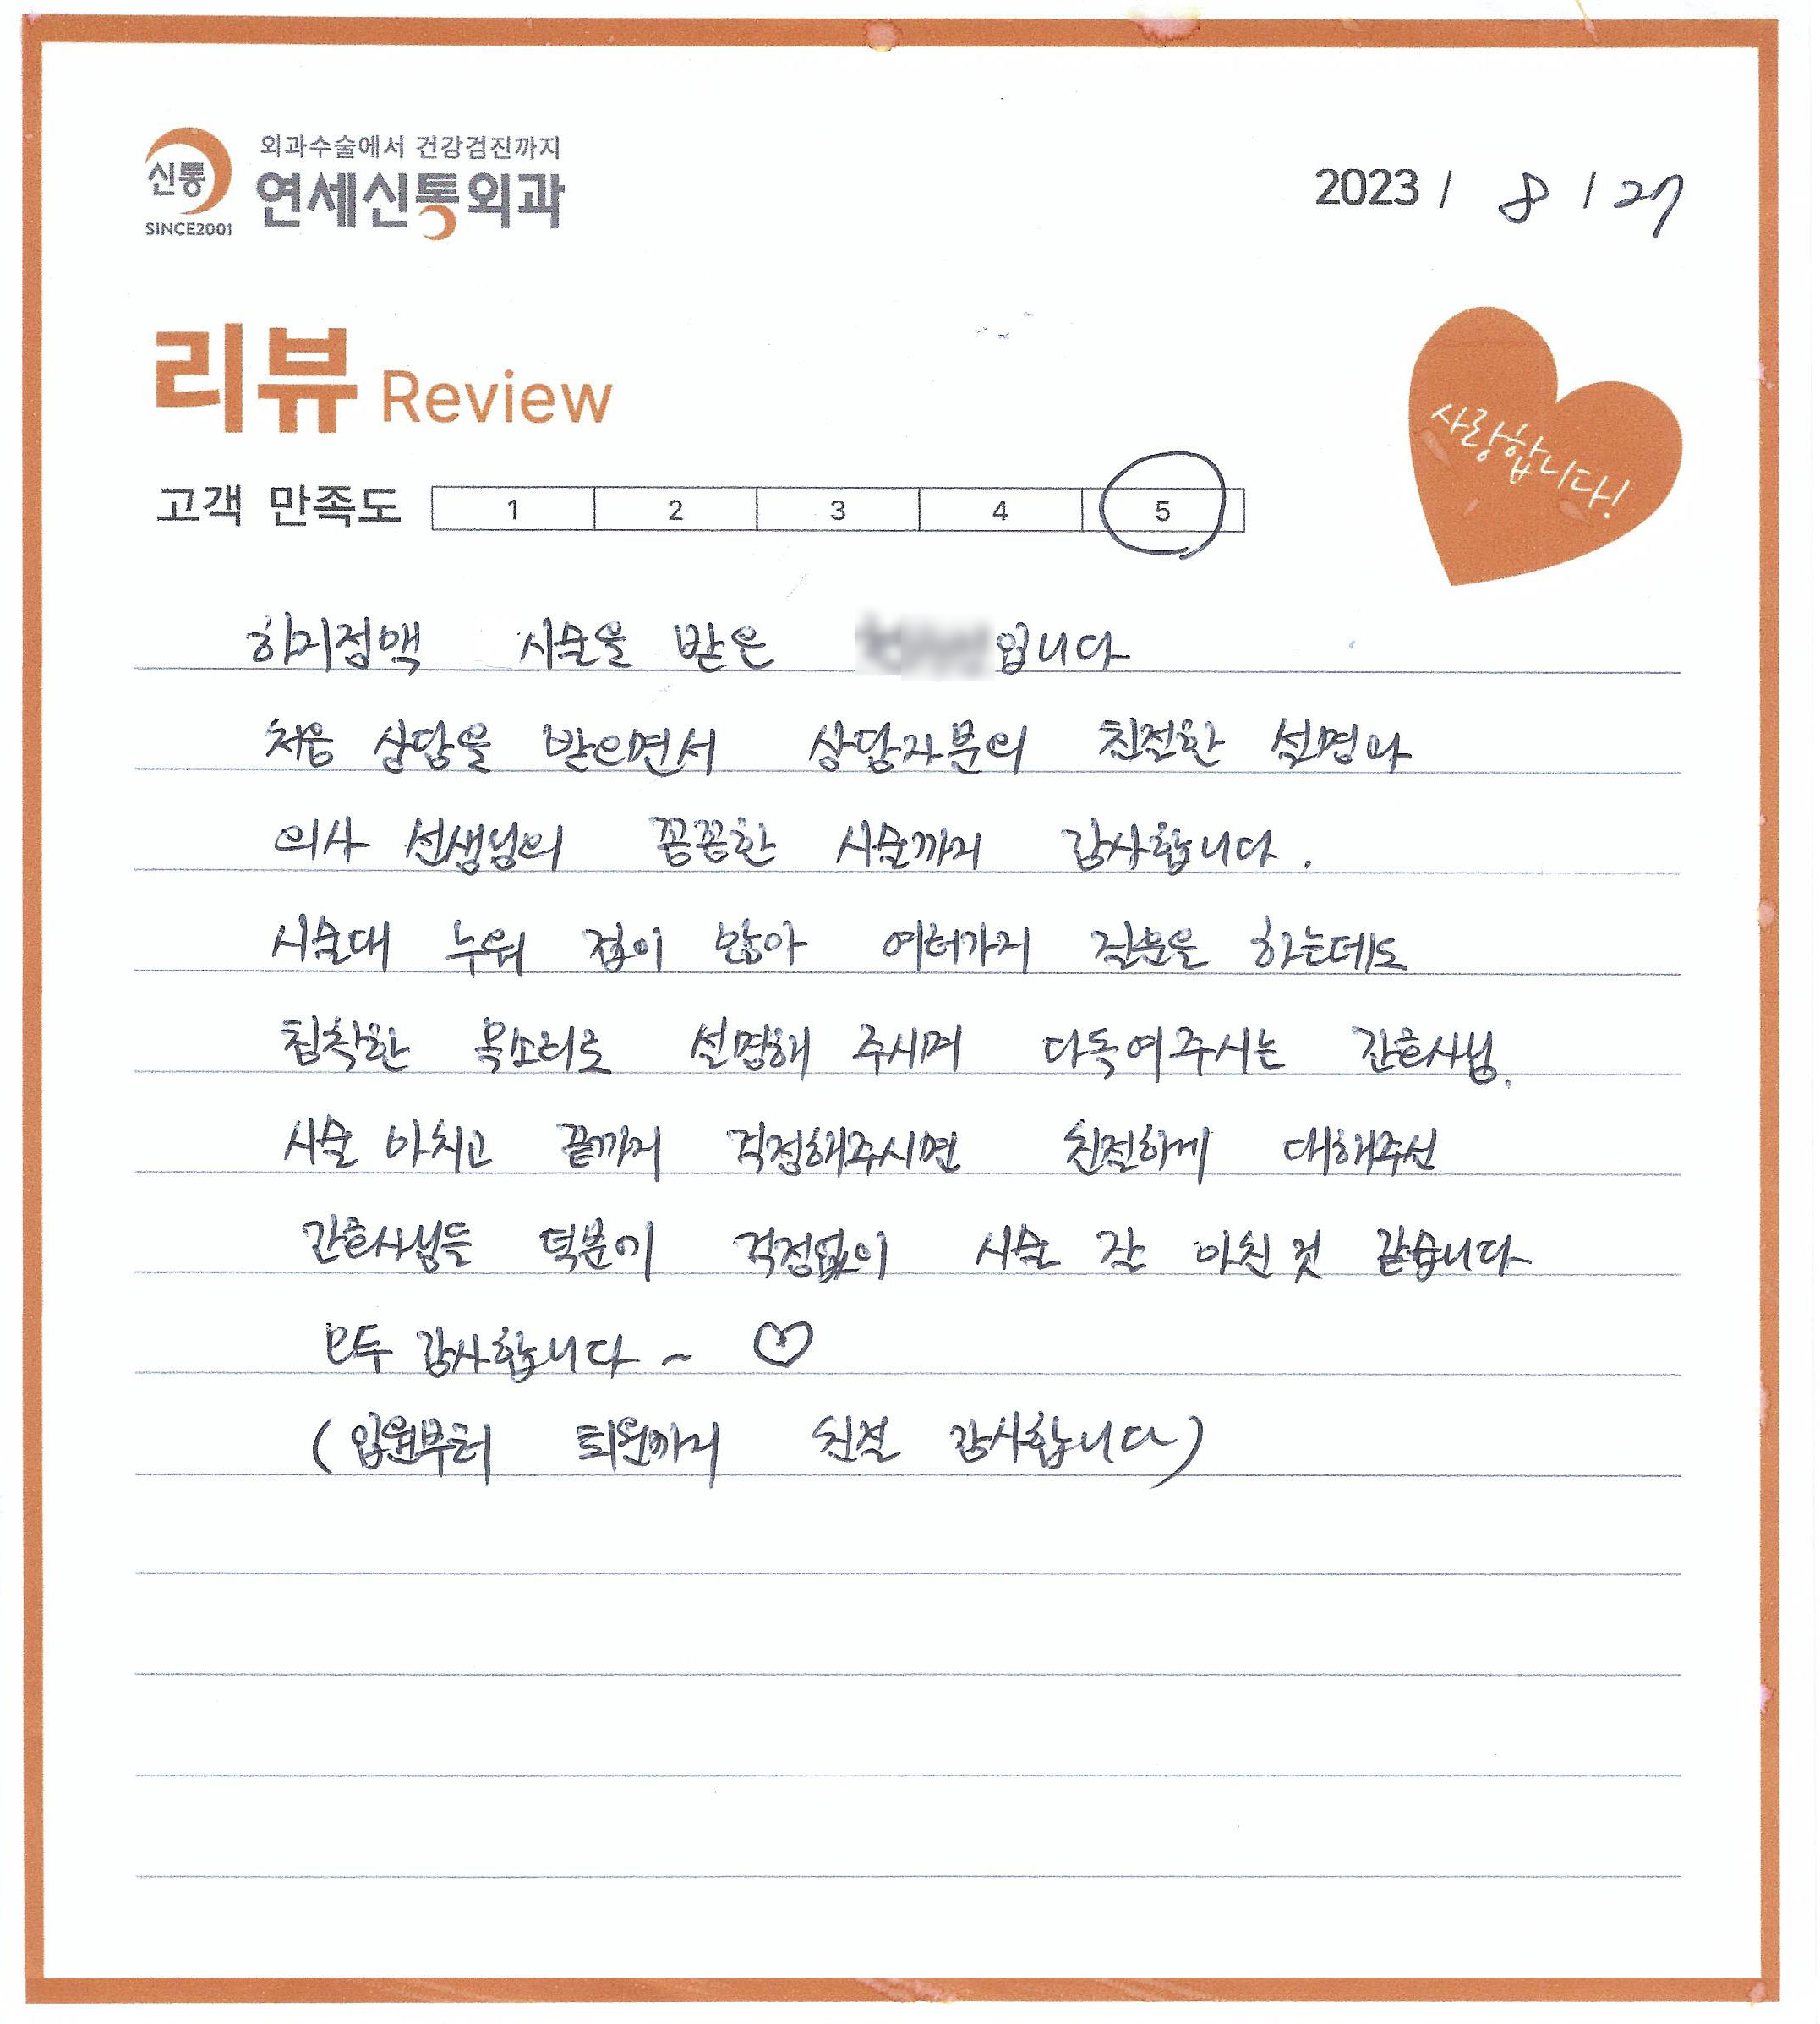 신통
SINCE2001
외과수술에서 건강검진까지
연세신통외과
2023 / 8 / 27
리뷰 Review
사랑합니다!
고객 만족도 1 2 3 4 5
하지정맥 시술을 받은 입니다
처음 상담을 받으면서 상담자분의 친절한 설명과
의사 선생님의 꼼꼼한 시술까지 감사합니다.
시술대 누워 겁이 많아 여러가지 질문을 하는데도
침착한 목소리로 설명해 주시며 다독여주시는 간호사님.
시술 마치고 끝까지 걱정해주시면 친절하게 대해주신
간호사님들 덕분에 걱정없이 시술 잘 마친것 같습니다
모두 감사합니다 ~ ♡
(입원부터 퇴원까지 친절 감사합니다)